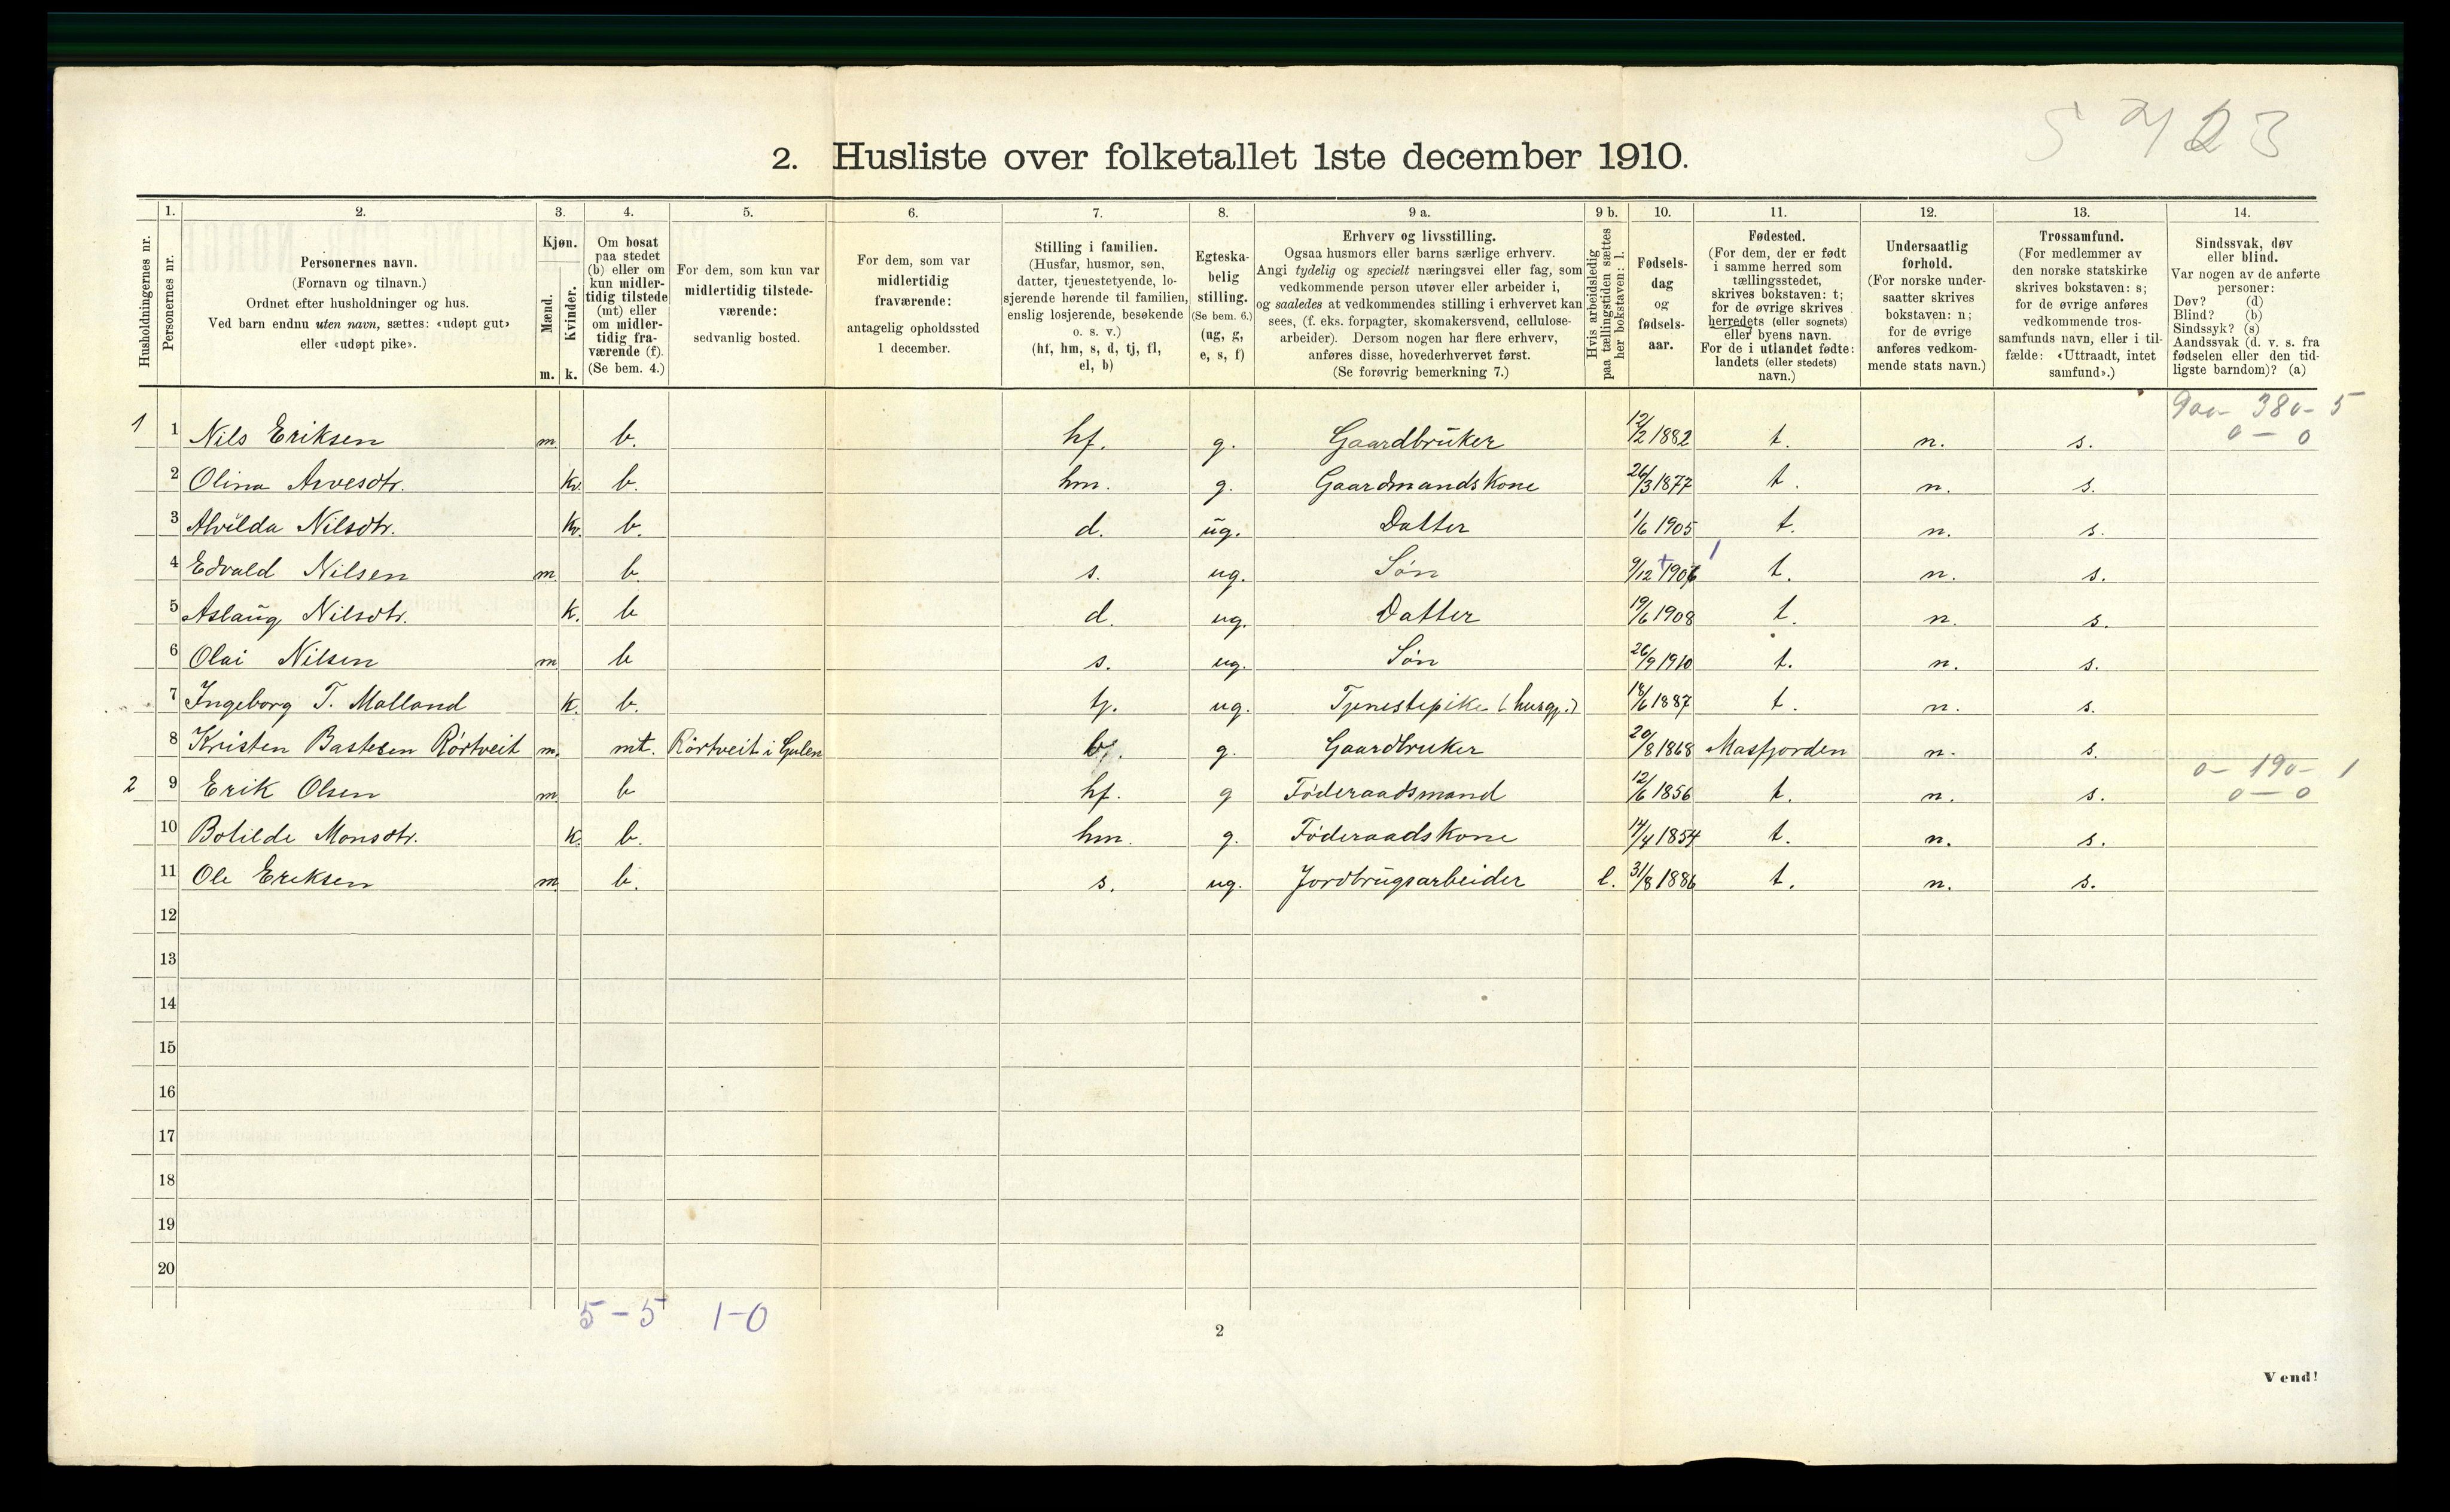 5 2/ 123
2. Husliste over folketallet 1ste december 1910.
Husholdningernes nr.
1. Personernes nr.
2. Personernes navn. (Fornavn og tilnavn.) Ordnet efter husholdninger og hus. Ved barn endnu uten navn, sættes: «udøpt gut» eller «udøpt pike».
3. Kjøn. Mænd. m. Kvinder. k.
4. Om bosat paa stedet (b) eller om kun midlertidig tilstede (mt) eller om midlertidig fraværende (f). (Se bem. 4.)
5. For dem, som kun var midlertidig tilstedeværende: sedvanlig bosted.
6. For dem, som var midlertidig fraværende: antagelig opholdssted 1 december.
7. Stilling i familien. (Husfar, husmor, søn, datter, tjenestetyende, losjerende hørende til familien, enslig losjerende, besøkende o. s. v.) (hf, hm, s, d, tj, fl, el, b)
8. Egteskabelig stilling. (Se bem. 6.) (ug, g, e, s, f)
9 a. Erhverv og livsstilling. Ogsaa husmors eller barns særlige erhverv. Angi tydelig og specielt næringsvei eller fag, som vedkommende person utøver eller arbeider i, og saaledes at vedkommendes stilling i erhvervet kan sees, (f. eks. forpagter, skomakersvend, cellulosearbeider). Dersom nogen har flere erhverv, anføres disse, hovederhvervet først. (Se forøvrig bemerkning 7.)
9 b. Hvis arbeidsledig paa tællingstiden sættes her bokstaven: l.
10. Fødselsdag og fødselsaar.
11. Fødested. (For dem, der er født i samme herred som tællingsstedet, skrives bokstaven: t; for de øvrige skrives herredets (eller sognets) eller byens navn. For de i utlandet fødte: landets (eller stedets) navn.)
12. Undersaatlig forhold. (For norske undersaatter skrives bokstaven: n; for de øvrige anføres vedkommende stats navn.)
13. Trossamfund. (For medlemmer av den norske statskirke skrives bokstaven: s; for de øvrige anføres vedkommende trossamfunds navn, eller i tilfælde: «Uttraadt, intet samfund».)
14. Sindssvak, døv eller blind. Var nogen av de anførte personer: Døv? (d) Blind? (b) Sindssyk? (s) Aandssvak (d. v. s. fra fødselen eller den tidligste barndom)? (a)
900- 380- 5
1 1 Nils Eriksen m b. hf. g. Gaardbruker 12/2 1882 t. n. s. 0 - 0
2 Olina Arvesdtr. kv. b. hm. g. Gaardmandskone 26/3 1877 t. n. s.
3 Alvilda Nilsdtr. kv. b. d. ug. Datter 1/6 1905 t. n. s.
4 Edvald Nilsen m b. s. ug. Søn 9/12 1906 t. n. s.
5 Aslaug Nilsdtr. k. b d. ug. Datter 19/6 1908 t. n. s.
6 Olai Nilsen m b s. ug. Søn 26/9 1910 t. n. s.
7 Ingeborg T. Molland k. b. tj. ug. Tjenestepike (husgj.) 18/6 1887 t. n. s.
8 Kristen Bastesen Rörtveit m. mt. Rörtveit i Gulen b. g. Gaardbruker 20/8 1868 Masfjorden n. s.
0- 190- 1
2 9 Erik Olsen m b hf. g Föderaadsmand 12/6 1856 t. n. s. 0 - 0
10 Botilde Monsdtr. k. b. hm. g. Föderaadskone 14/4 1854 t. n. s.
11 Ole Eriksen m b. s. ug. Jordbrugsarbeider l. 31/8 1886 t. n. s.
12
13
14
15
16
17
18
19
20
5 - 5 1 - 0
2
Vend!